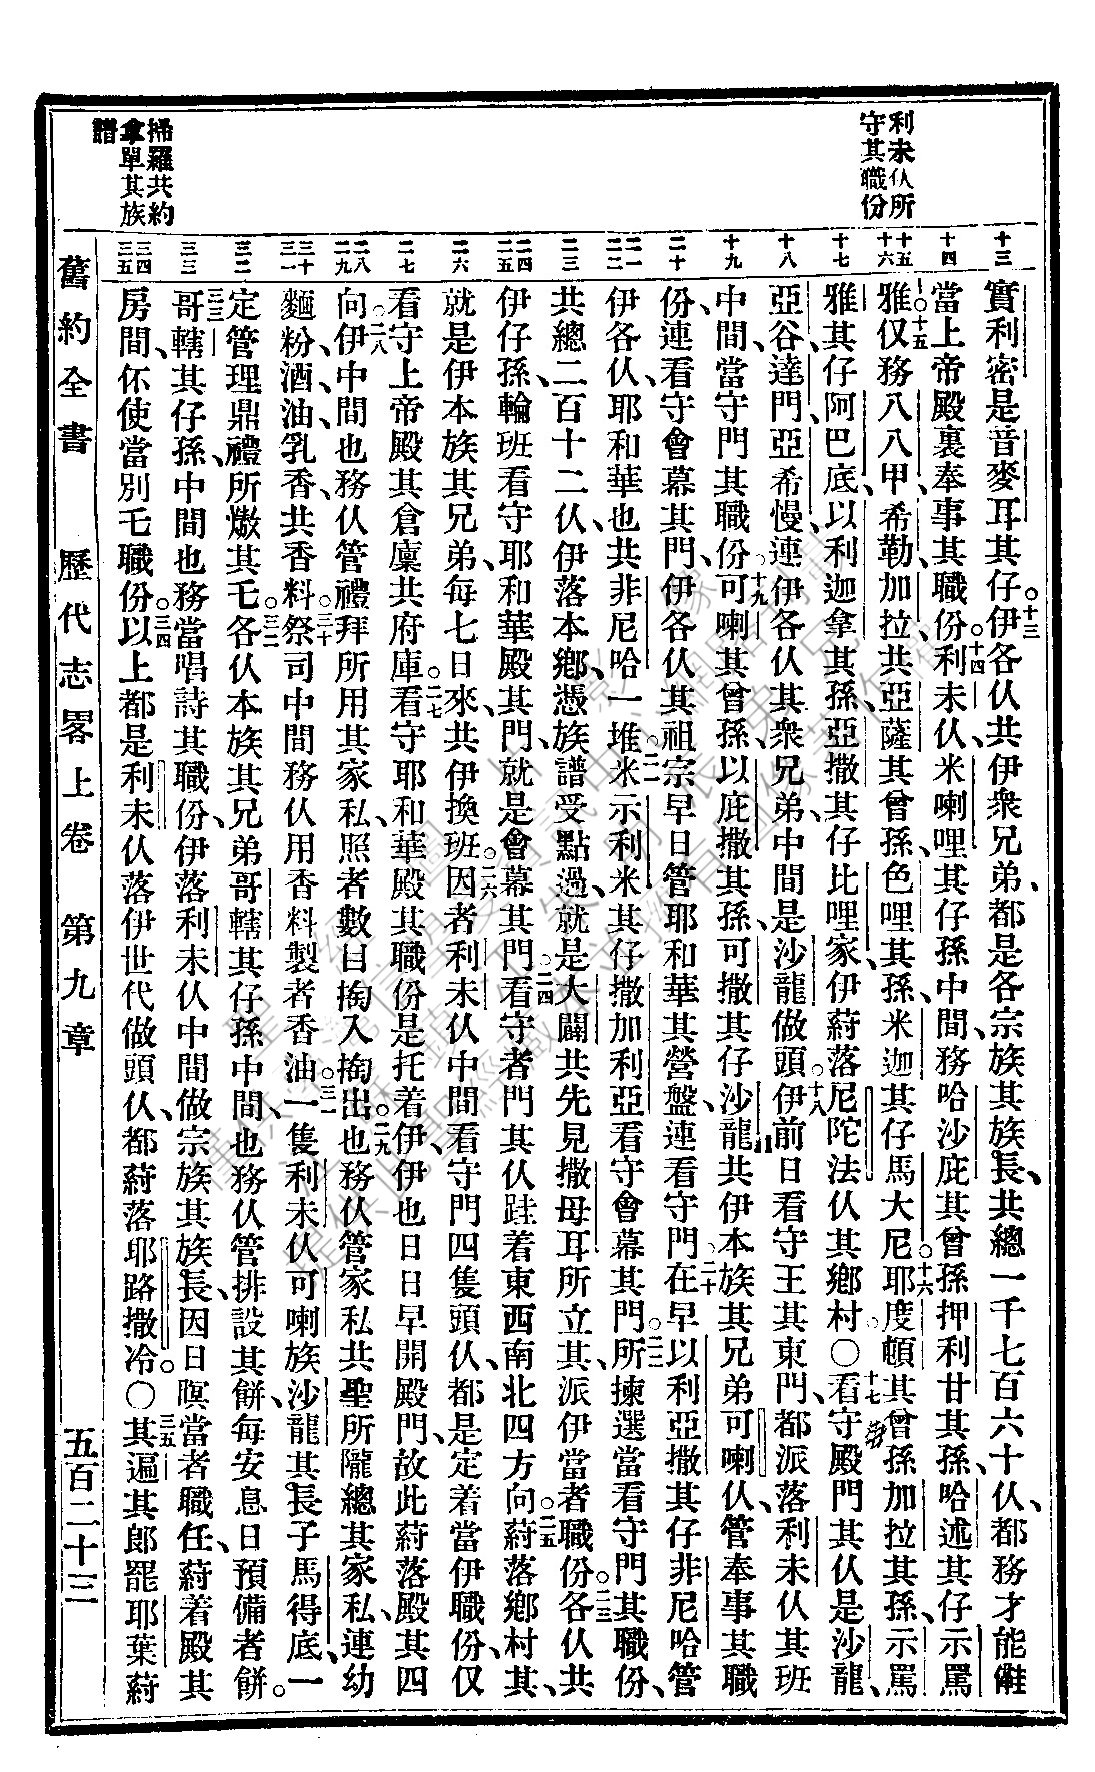 利未仈所
守其職份
掃羅共約
拿單其族
譜
十三
十四
十五
十六
十七
十八
十九
二十
二一
二二
二三
二四
二五
二六
二七
二八
二九
三十
三一
三二
三三
三四
三五
實利密是音麥耳其仔。十三伊各仈共伊衆兄弟、都是各宗族其族長、共總一千七百六十仈、都務才能㑚
當上帝殿裏奉事其職份。十四利未仈、米喇哩其仔孫中間、務哈沙庇其曾孫押利甘其孫、哈述其仔示罵
雅。十五仅務八八甲、希勒、加拉、共亞薩其曾孫、色哩其孫、米迦其仔馬大尼。十六耶度頓其曾孫加拉其孫、示罵
雅其仔阿巴底、以利迦拿其孫、亞撒其仔比哩家、伊葤落尼陀法仈其鄉村○十七看守殿門其仈是沙龍、
亞谷、達門、亞希慢、連伊各仈其衆兄弟、中間是沙龍做頭。十八伊前日看守王其東門、都派落利未仈其班
中間、當守門其職份。十九可喇其曾孫、以庇撒其孫、可撒其仔沙龍、共伊本族其兄弟可喇仈、管奉事其職
份、連看守會幕其門、伊各仈其祖宗早日管耶和華其營盤、連看守門。二十在早以利亞撒其仔非尼哈管
伊各仈、耶和華也共非尼哈一堆。二一米示利米其仔撒加利亞看守會幕其門。二二所揀選當看守門其職份、
共總二百十二仈、伊落本鄉、憑族譜受點過、就是大闢共先見撒母耳所立其、派伊當者職份。二三各仈共
伊仔孫、輪班看守耶和華殿其門、就是會幕其門。二四看守者門其仈跬着東西南北四方向。二五葤落鄉村其、
就是伊本族其兄弟、每七日來、共伊換班。二六因者利未仈中間看守門四隻頭仈、都是定着當伊職份、仅
看守上帝殿其倉廩共府庫。二七看守耶和華殿其職份是托着伊、伊也日日早開殿門、故此葤落殿其四
向。二八伊中間也務仈管禮拜所用其家私、照者數目掏入掏出。二九也務仈管家私共聖所隴總其家私、連幼
麵粉、酒、油、乳香、共香料。三十祭司中間務仈用香料製者香油。三一一隻利未仈可喇族、沙龍其長子馬得底、一
定管理鼎禮所燩其乇。三二各仈本族其兄弟、哥轄其仔孫中間、也務仈管排設其餅、每安息日預備者餅。
三三哥轄其仔孫、中間也務當唱詩其職份、伊落利未仈中間、做宗族其族長、因日暝當者職任、葤着殿其
房間、伓使當別乇職份。三四以上都是利未仈、落伊世代做頭仈、都葤落耶路撒冷。○三五其遍其郎罷耶葉葤
舊約全書　歷代志畧上卷　第九章　五百二十三